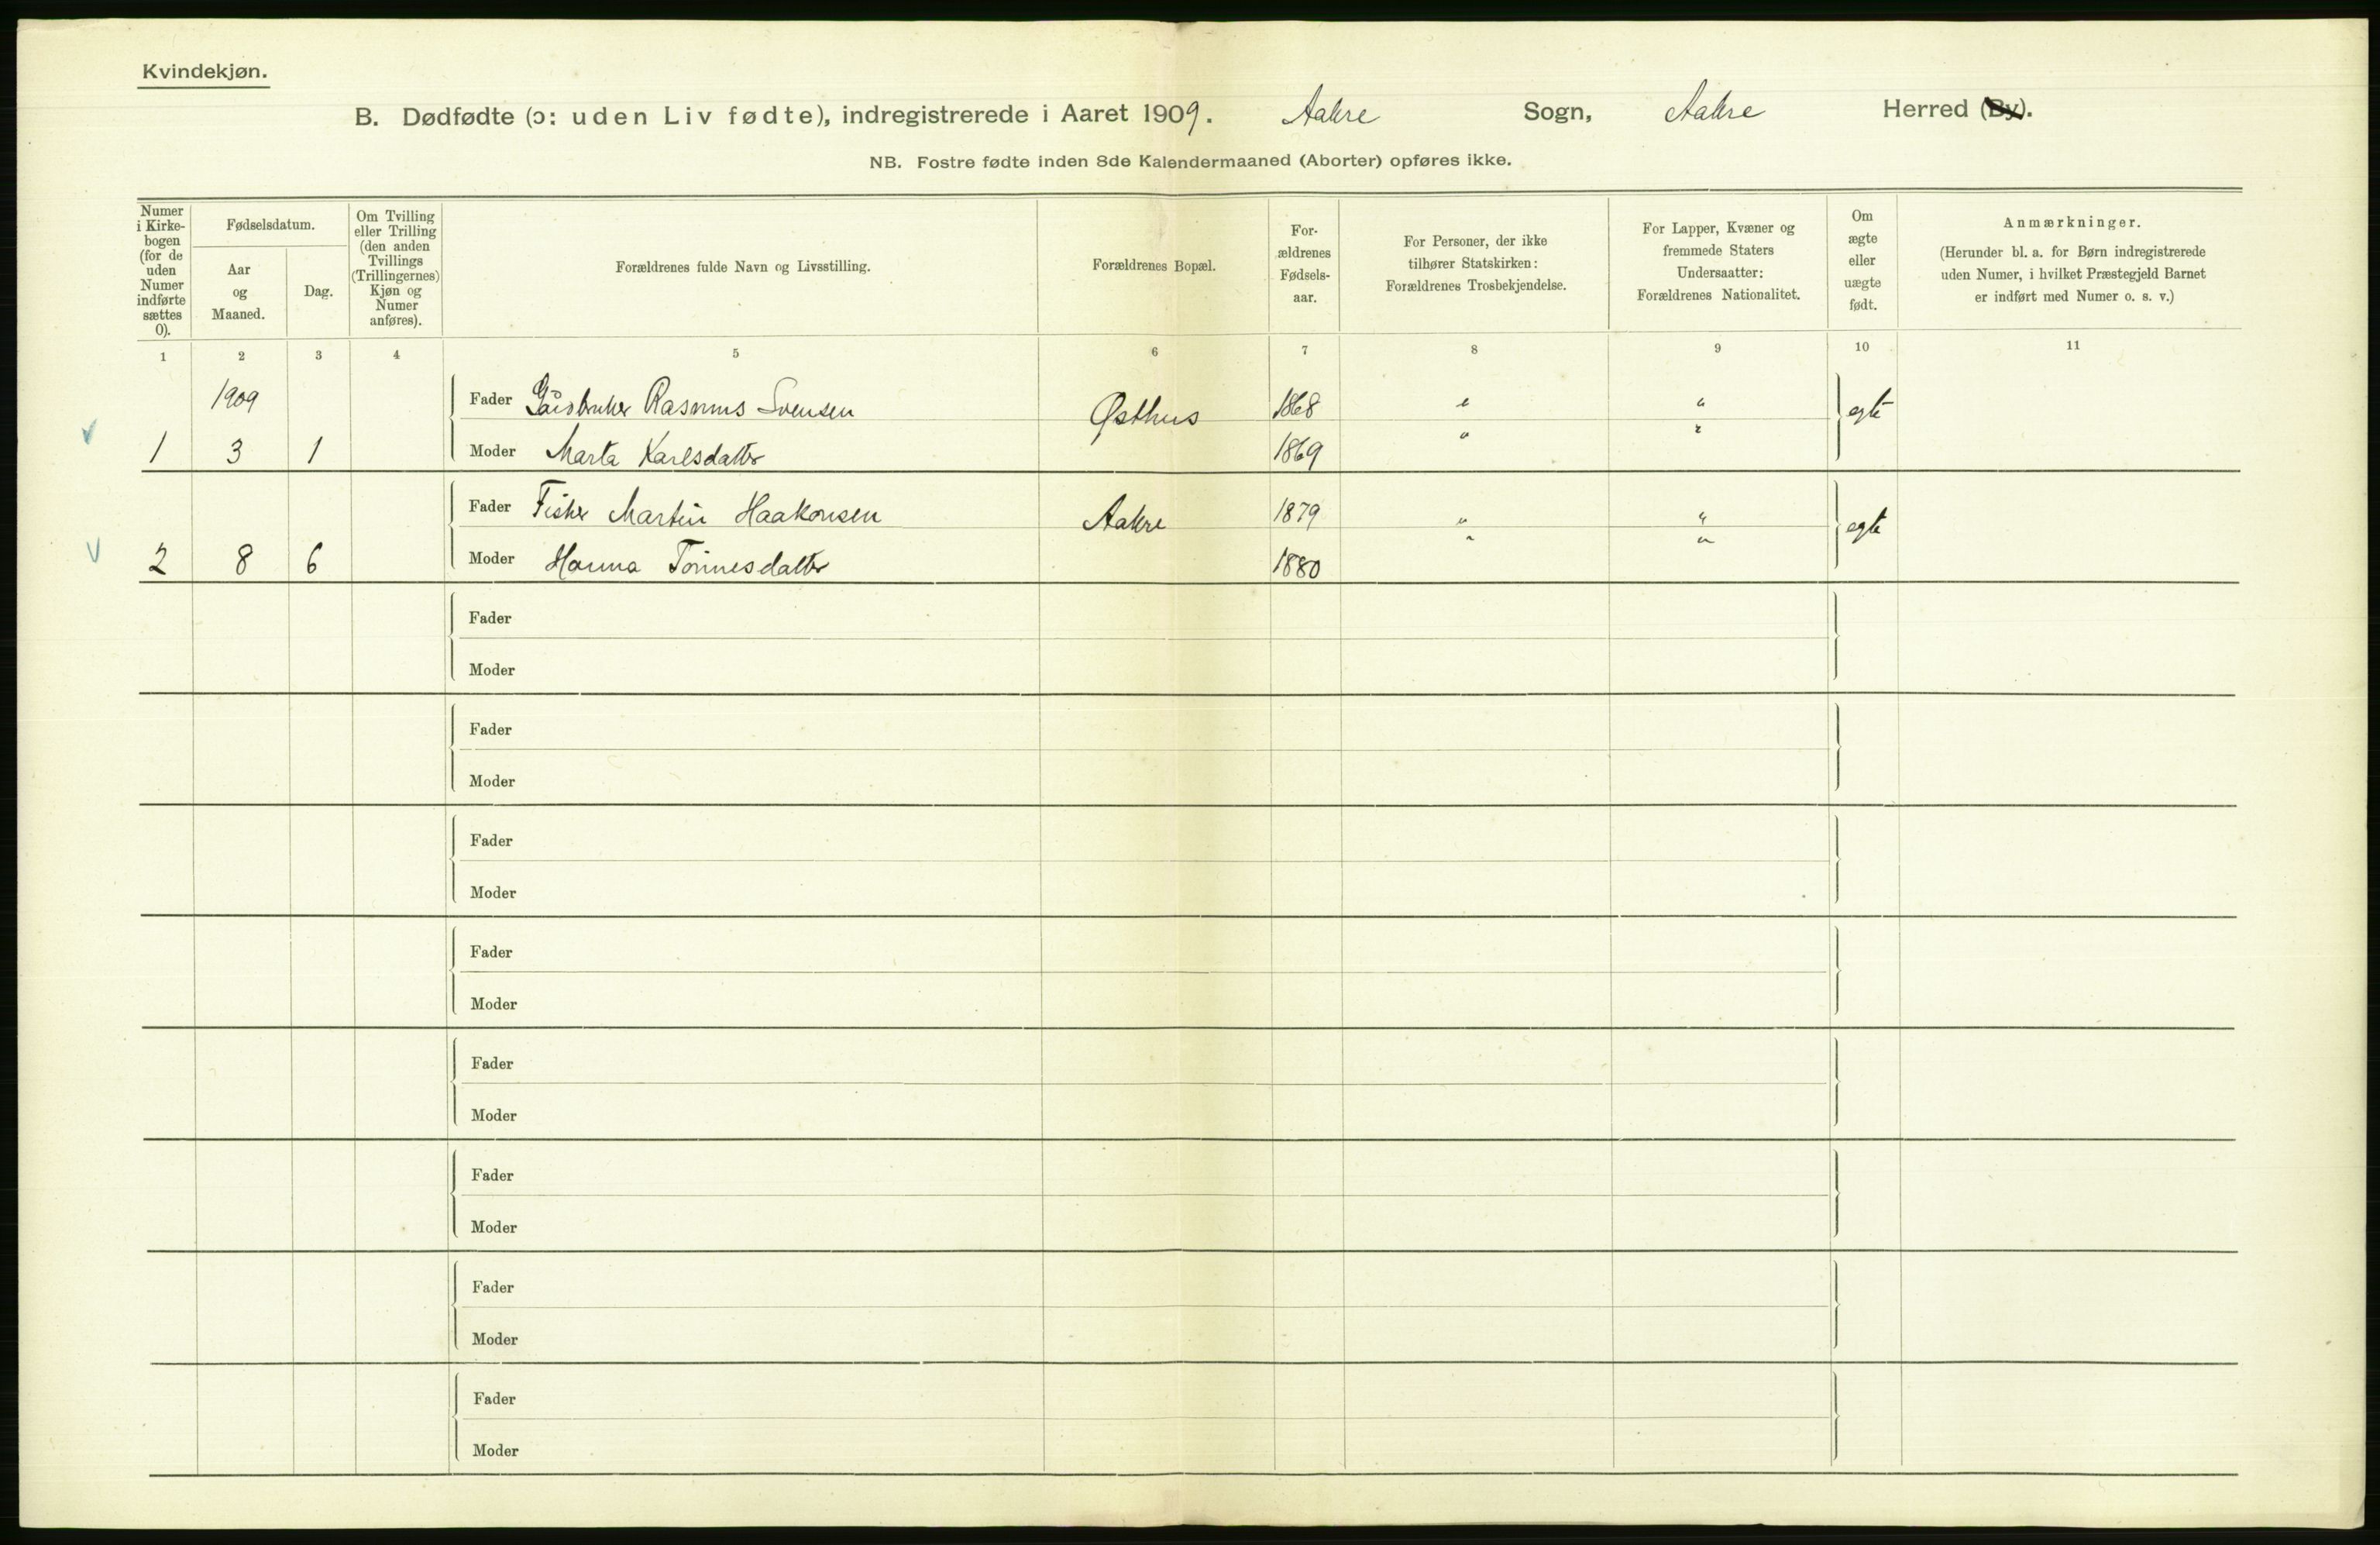 Kvindekjøn.
B. Dødfødte (ɔ: uden Liv fødte), indregistrerede i Aaret 1909. Aakre Sogn, Aakre Herred (By).
NB. Fostre fødte inden 8de Kalendermaaned (Aborter) opføres ikke.
Numer i Kirke-bogen (for de uden Numer indførte sættes 0).
Fødselsdatum.
Aar og Maaned.
Dag.
Om Tvilling eller Trilling (den anden Tvillings (Trillingernes) Kjøn og Numer anføres).
Forældrenes fulde Navn og Livsstilling.
Forældrenes Bopæl.
For-ældrenes Fødsels-aar.
For Personer, der ikke tilhører Statskirken: Forældrenes Trosbekjendelse.
For Lapper, Kvæner og fremmede Staters Undersaatter: Forældrenes Nationalitet.
Om ægte eller uægte født.
Anmærkninger.
(Herunder bl. a. for Børn indregistrerede uden Numer, i hvilket Præstegjeld Barnet er indført med Numer o. s. v.)
1 2 3 4 5 6 7 8 9 10 11
1909 Fader Gaardbruker Rasmus Svensen Østhus 1868 " " egte
1 3 1 Moder Marta Karlsdatter 1869 " "
Fader Fisker Martin Haakonsen Aakre 1879 " " egte
2 8 6 Moder Hanna Tønnesdatter 1880 " "
Fader
Moder
Fader
Moder
Fader
Moder
Fader
Moder
Fader
Moder
Fader
Moder
Fader
Moder
Fader
Moder